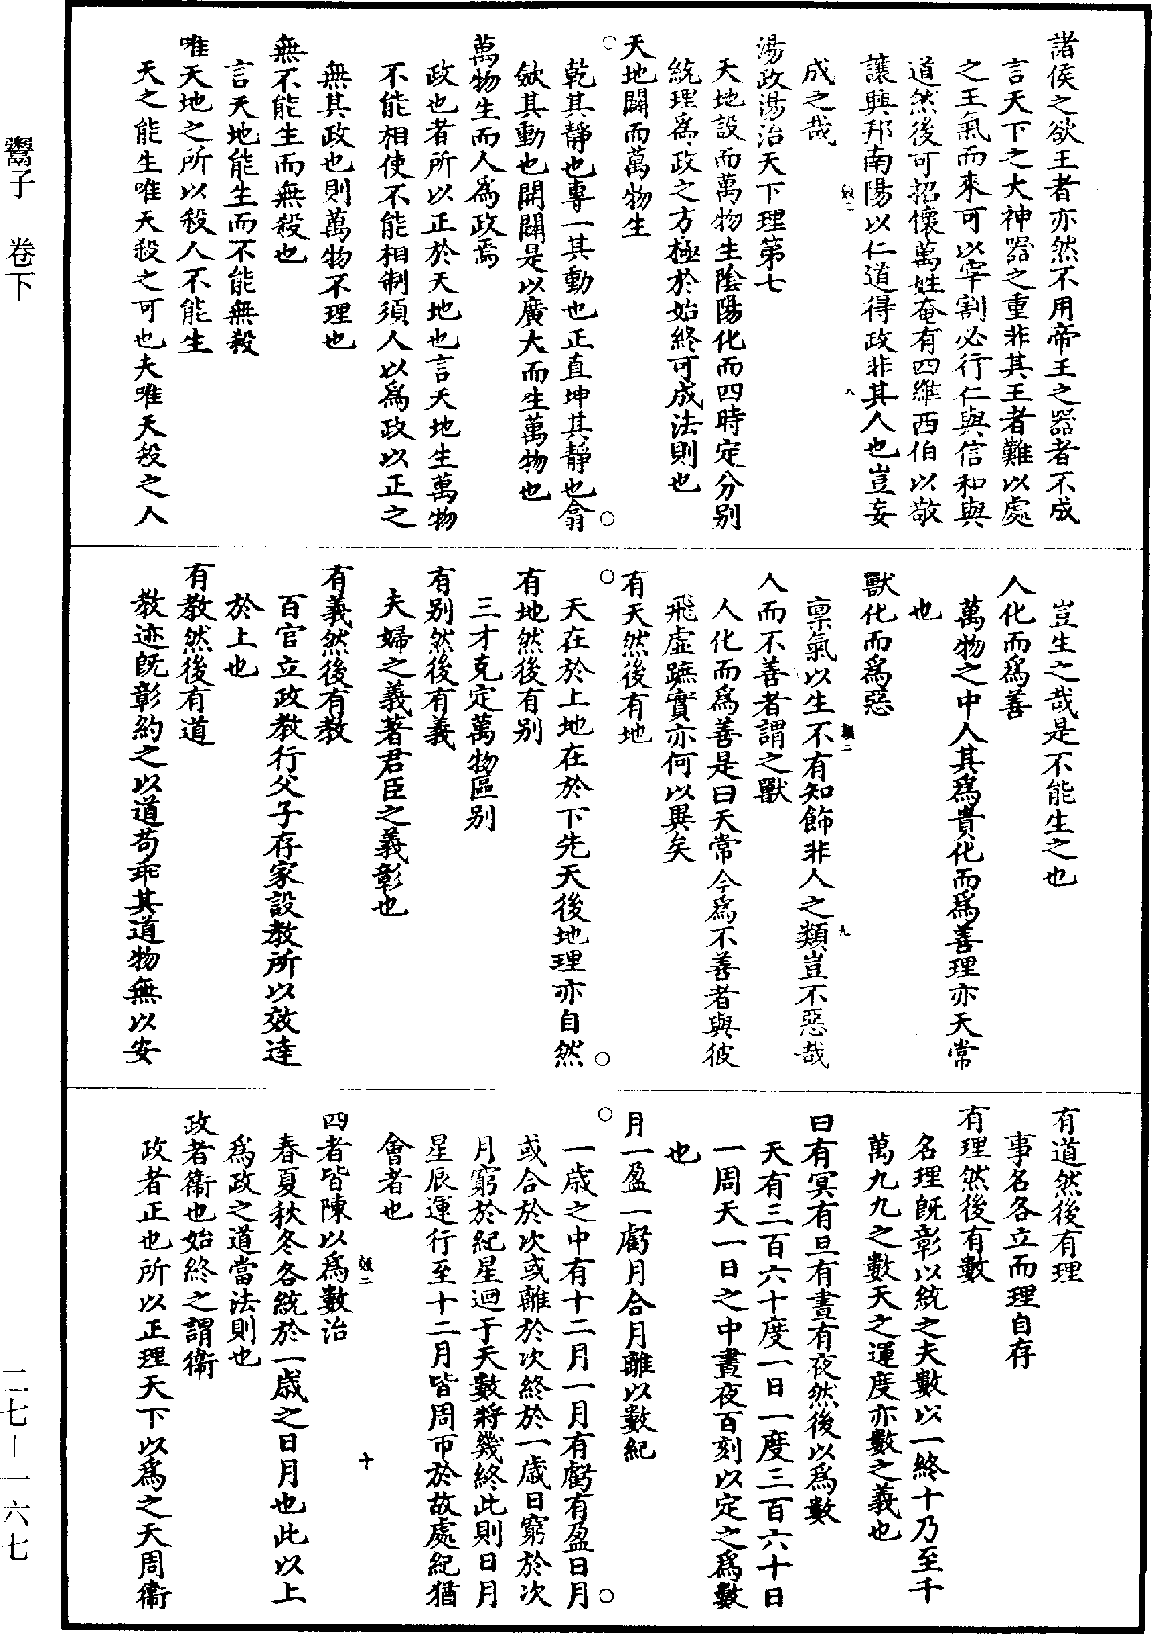 諸侯之欲王者亦然不用帝王之器者不成
言天下之大神器之重非其王者難以處
之王氣而來可以宰割必行仁與信和與
道然後可招懷萬姓奄有四維西伯以敬
讓興邦南陽以仁道得政非其人也豈妄
成之哉
湯政湯治天下理第七
天地設而萬物生陰陽化而四時定分別
統理爲政之方極於始終可成法則也
天地闢而萬物生
乾其靜也專一其動也正直坤其靜也翕
斂其動也開闢是以廣大而生萬物也
萬物生而人爲政焉
政也者所以正於天地也言天地生萬物
不能相使不能相制須人以爲政以正之
無其政也則萬物不理也
無不能生而無殺也
言天地能生而不能無殺
唯天地之所以殺人不能生
天之能生唯天殺之可也夫唯天殺之人
豈生之哉是不能生之也
人化而爲善
萬物之中人其爲貴化而爲善理亦天常
也
獸化而爲惡
稟氣以生不有知飾非人之類豈不惡哉
人而不善者謂之獸
人化而爲善是曰天常今爲不善者與彼
飛虛蹠實亦何以異矣
有天然後有地
天在於上地在於下先天後地理亦自然
有地然後有別
三才克定萬物區別
有別然後有義
夫婦之義著君臣之義彰也
有義然後有教
百官立政教行父子存家設教所以效達
於上也
有教然後有道
教迹既彰約之以道苟乖其道物無以安
有道然後有理
事名各立而理自存
有理然後有數
名理既彰以統之夫數以一終十乃至千
萬九九之數天之運度亦數之義也
日有冥有旦有晝有夜然後以爲數
天有三百六十度一日一度三百六十日
一周天一日之中晝夜百刻以定之爲數
也
月一盈一虧月合月離以數紀
一歲之中有十二月一月有虧有盈日月
或合於次或離於次終於一歲日窮於次
月窮於紀星迴于天數將幾終此則日月
星辰運行至十二月皆周帀於故處紀猶
會者也
四者皆陳以爲數治
春夏秋冬各統於一歲之日月也此以上
爲政之道當法則也
政者衞也始終之謂衞
政者正也所以正理天下以爲之天周衞
鬻子 卷下
二七—一六七
八
九
十